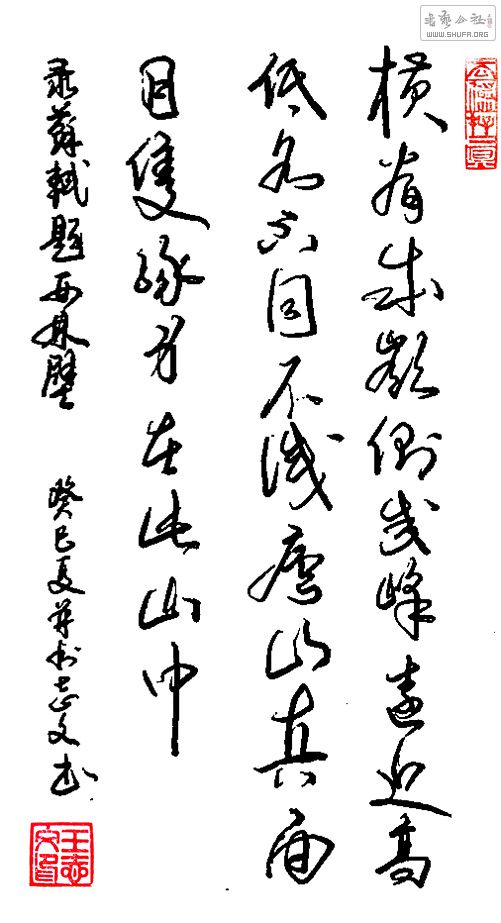 書藝公社
WWW.SHUFA.ORG
橫看成嶺側成峰遠近高
低各不同不識廬山真面
目隻緣身在此山中
录蘇軾题西林壁
癸巳夏并州志文书
王志文印